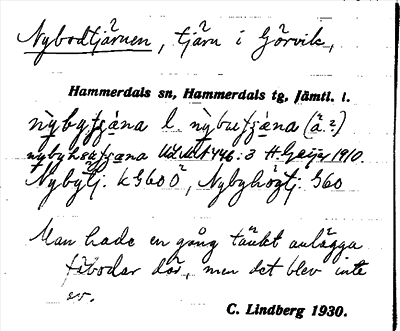 Nybodtjärnen, tjärn i Görvik,
Hammerdals sn, Hammerdals tg, Jämtl. l.
nỳbytjǡna l. nỳbutjǡna (ä?)
446:3 H. Geijer 1910.
Nybytj. kG60Ö, Nybyhögtj. G60
Man hade en gång tänkt anlägga
fäbodar där, men det blev inte
av.
C. Lindberg 1930.